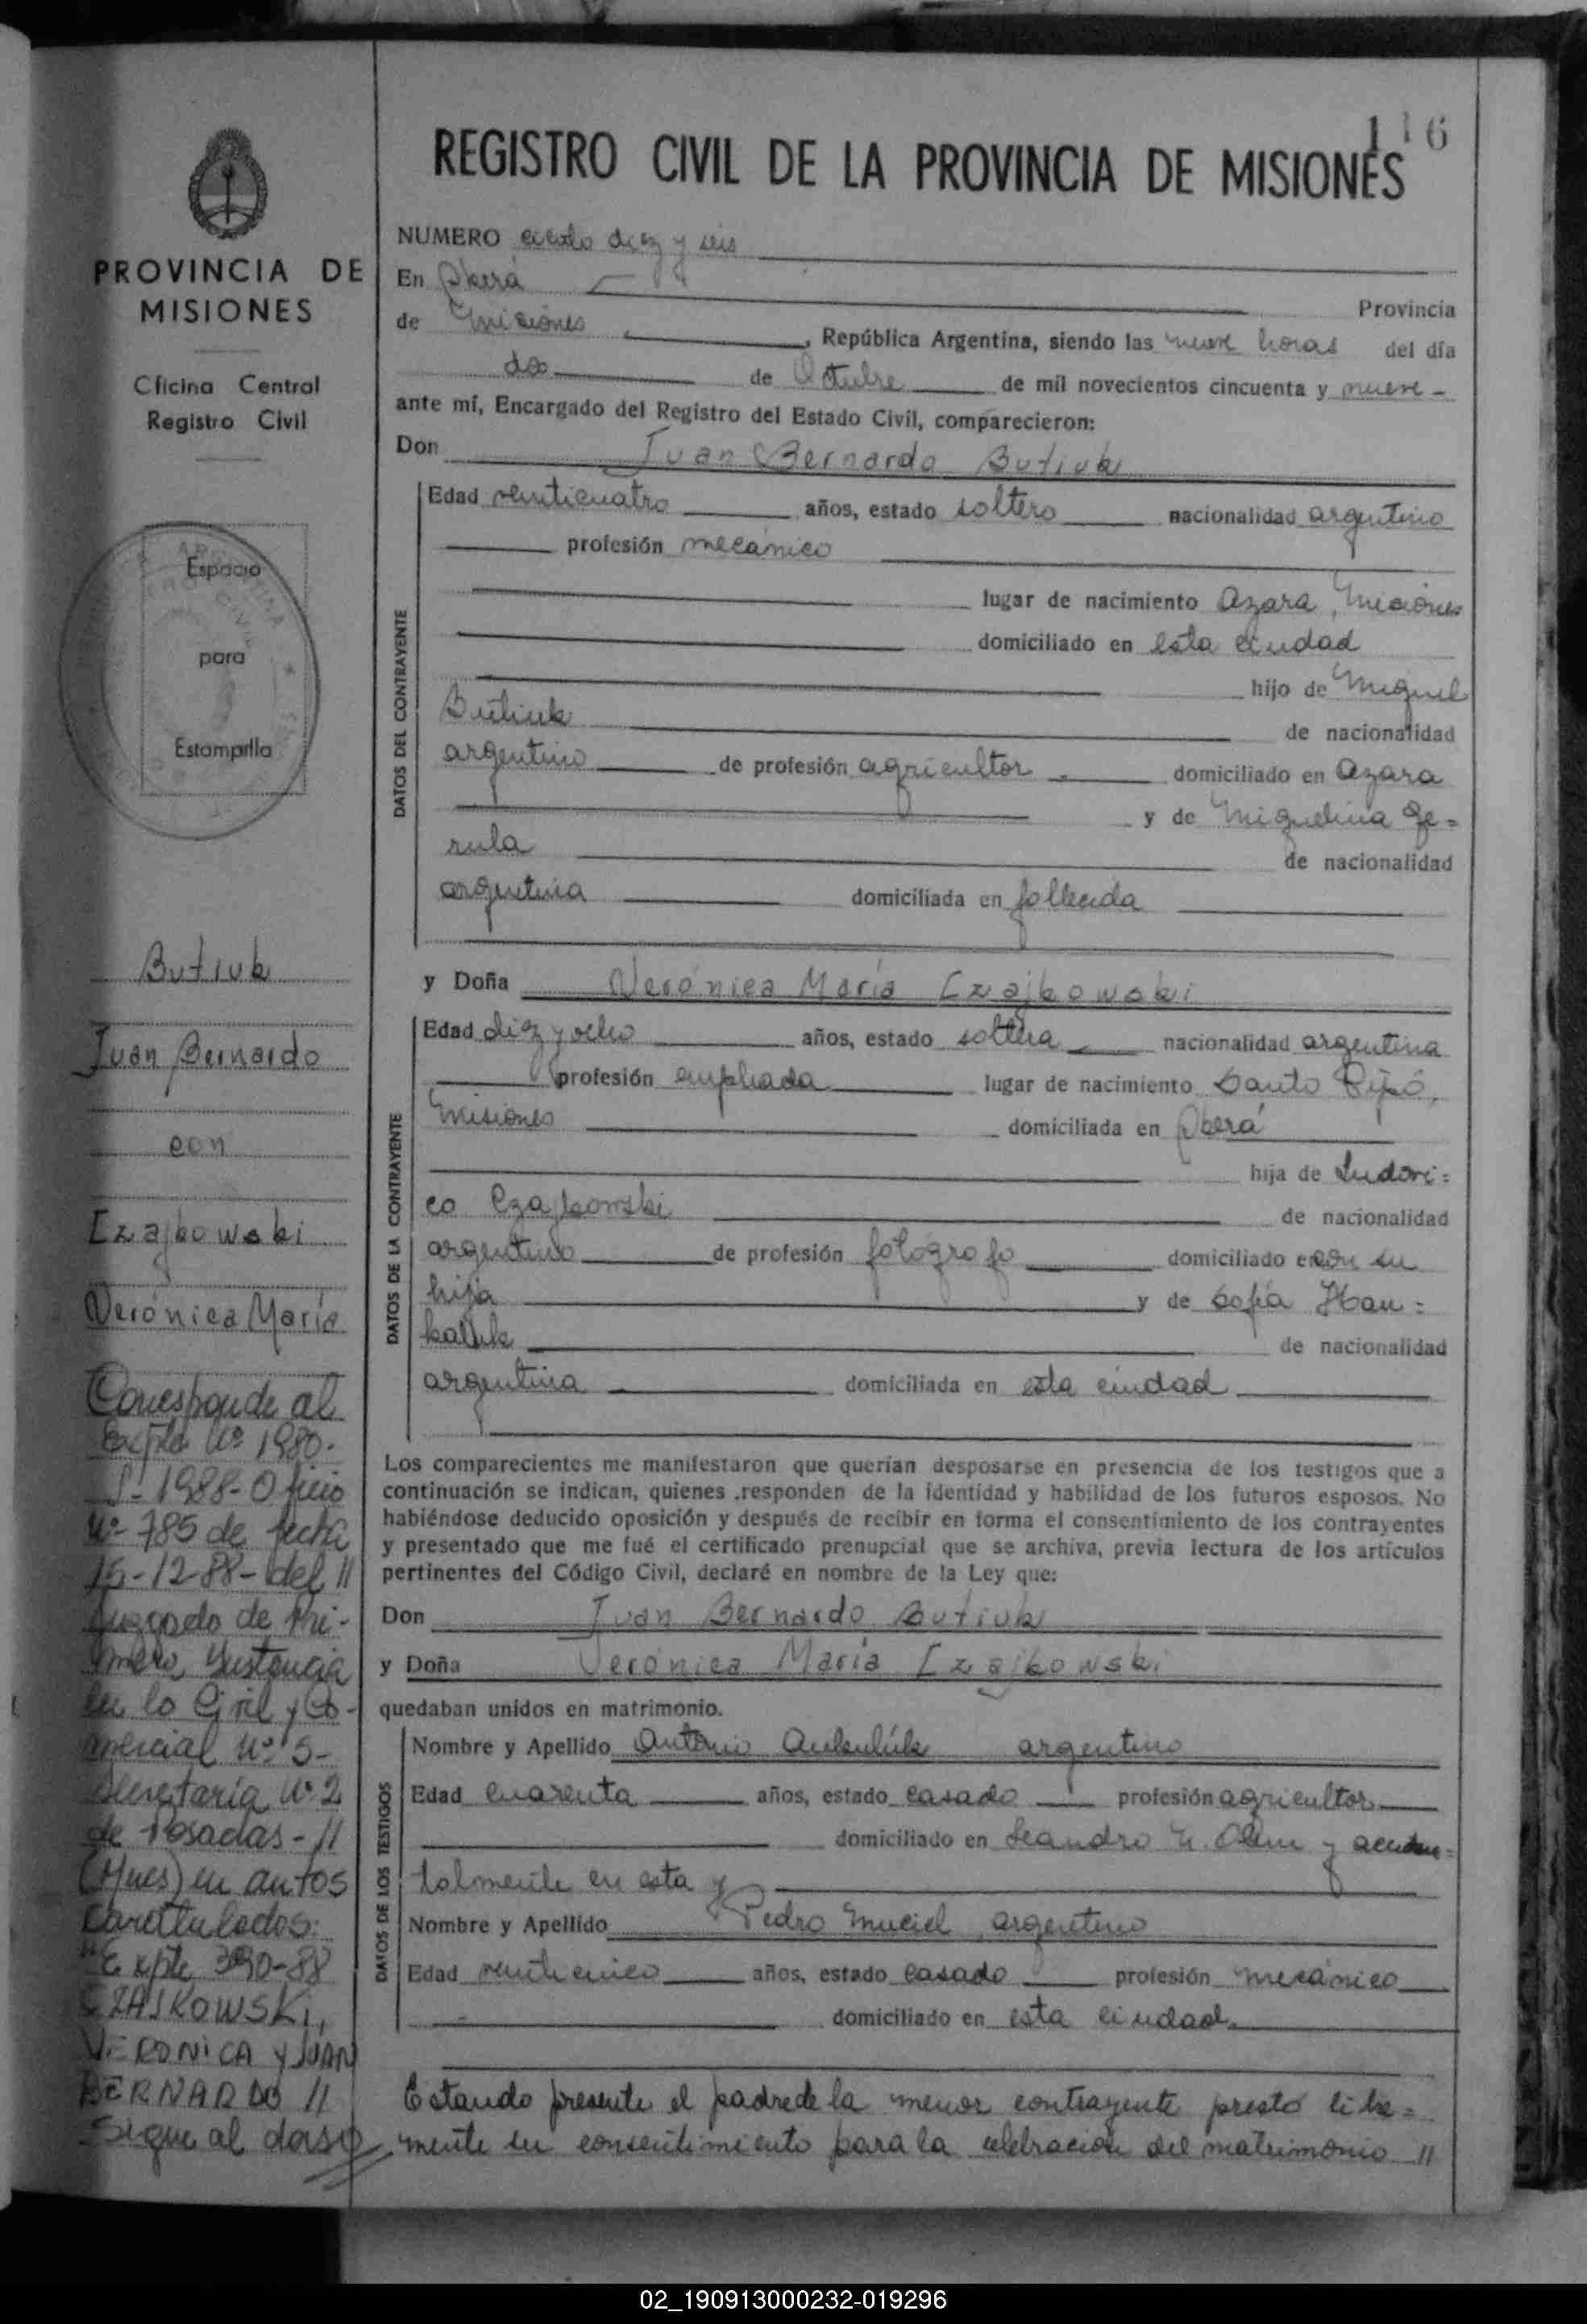 116
REGISTRO CIVIL DE LA PROVINCIA DE MISIONES
PROVINCIA DE
MISIONES
Oficina Central
Registro Civil
Espacio
para
Estampilla
Butiuk
Juan Bernardo
con
Czajkowski
Verónica María
Corresponde al
Expte Nº 1980-
S- 1988- Oficio
Nº 785 de fecha
15-12-88- del //
Juzgado de Pri-
mera Instancia
en lo Civil y Co-
mercial Nº 5-
Secretaría Nº 2
de Posadas- //
(Mnes) en autos
Caratulados:
"Expte 390-88
CZAJKOWSKI,
VERONICA y JUAN
BERNARDO //
Sigue al dorso
NUMERO ciento diez y seis
En Oberá Provincia
de Misiones, República Argentina, siendo las nueve horas del día
dos de Octubre de mil novecientos cincuenta y nueve -
ante mí, Encargado del Registro del Estado Civil, comparecieron:
Don Juan Bernardo Butiuk
DATOS DEL CONTRAYENTE
Edad veinticuatro años, estado soltero nacionalidad argentino
profesión mecánico
lugar de nacimiento Azara, Misiones
domiciliado en esta ciudad
hijo de Miguel
Butiuk de nacionalidad
argentino de profesión agricultor domiciliado en Azara
y de Miguelina Ge=
rula de nacionalidad
argentina domiciliada en fallecida
y Doña Verónica María Czajkowski
DATOS DE LA CONTRAYENTE
Edad diez y ocho años, estado soltera nacionalidad argentina
profesión empleada lugar de nacimiento Santo Pipó,
Misiones domiciliada en Oberá
hija de Ludovi=
co Czajkowski de nacionalidad
argentino de profesión fotógrafo domiciliado en con su
hija y de Sofía Hau=
kaluk de nacionalidad
argentina domiciliada en esta ciudad
Los comparecientes me manifestaron que querían desposarse en presencia de los testigos que a
continuación se indican, quienes responden de la identidad y habilidad de los futuros esposos. No
habiéndose deducido oposición y después de recibir en forma el consentimiento de los contrayentes
y presentado que me fué el certificado prenupcial que se archiva, previa lectura de los artículos
pertinentes del Código Civil, declaré en nombre de la Ley que:
Don Juan Bernardo Butiuk
y Doña Verónica María Czajkowski
quedaban unidos en matrimonio.
DATOS DE LOS TESTIGOS
Nombre y Apellido Antonio argentino
Edad cuarenta años, estado casado profesión agricultor
domiciliado en Leandro N. Alem y acciden=
talmente en esta y
Nombre y Apellido Pedro Muciel, argentino
Edad veinticinco años, estado casado profesión mecánico
domiciliado en esta ciudad.
Estando presente el padre de la menor contrayente prestó libre=
mente su consentimiento para la celebración del matrimonio //
02_190913000232-019296